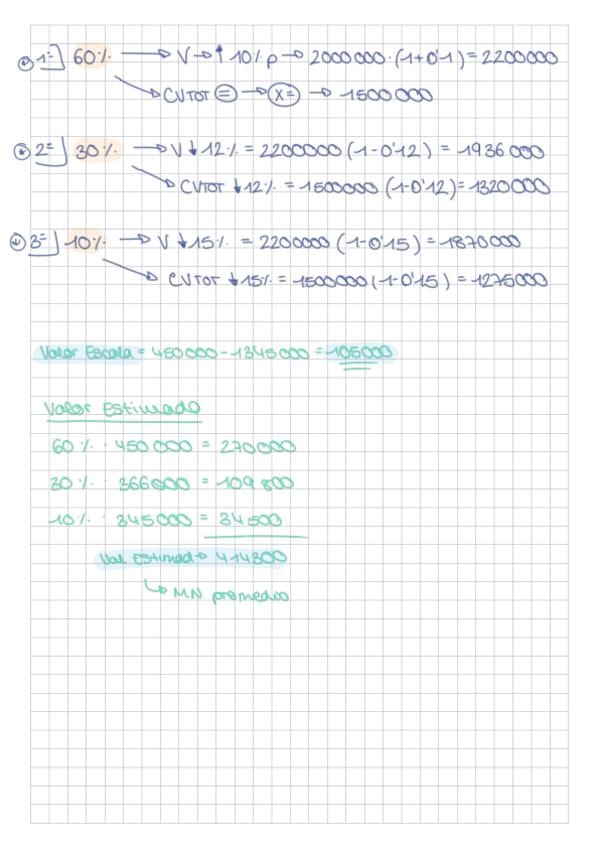 1º] 60% → V → ↑ 10% p → 2000000·(1+0'1) = 2200000
→ CVTOT = → x= → 1500000
2º] 30% → V ↓ 12% = 2200000 (1-0'12) = 1936000
→ CVTOT ↓ 12% = 1500000 (1-0'12) = 1320000
3º] 10% → V ↓ 15% = 2200000 (1-0'15) = 1870000
→ CVTOT ↓ 15% = 1500000 (1-0'15) = 1275000
Valor Escala = 450000 - 1345000 = 105000
Valor Estimado
60% · 450000 = 270000
30% · 366000 = 109800
10% · 345000 = 34500
Val Estimad → 414300
↳ MN promedio